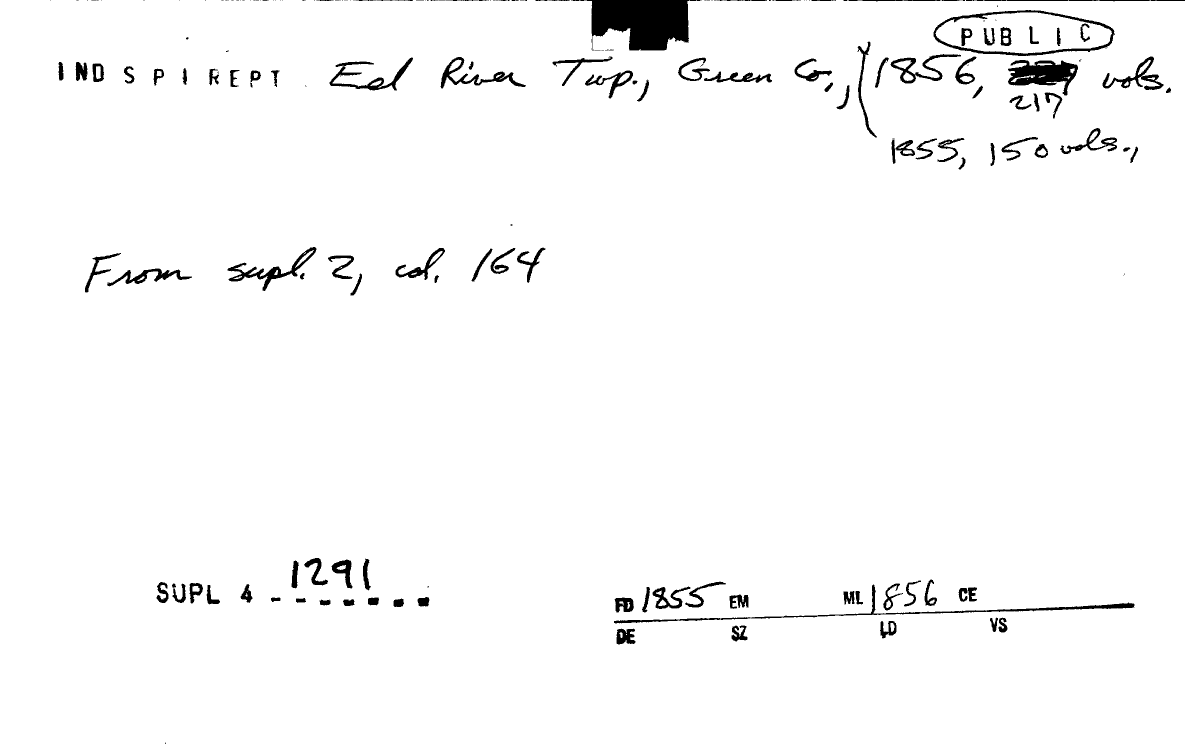 PUBLIC
IND SPIREPT Eel River Twp., Green Co., 1856, 217 vols.
1855, 150 vols.,
From supl. 2, col. 164
SUPL 4 1291
FD 1855 EM ML 1856 CE
DE SZ LD VS